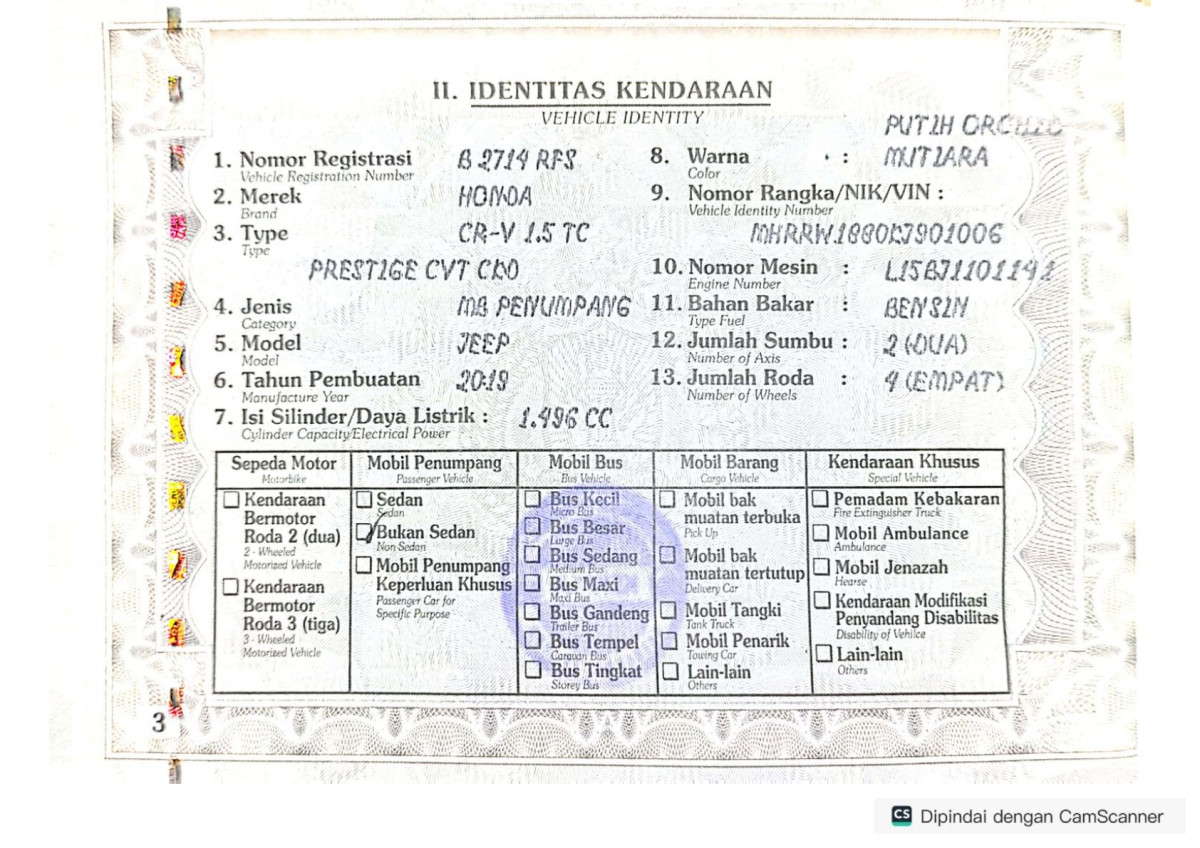 II. IDENTITAS KENDARAAN
VEHICLE IDENTITY
1. Nomor Registrasi B 2714 RFS
Vehicle Registration Number
2. Merek HONDA
Brand
3. Type CR-V 1.5 TC
Type
PRESTIGE CVT CKD
4. Jenis MB PENUMPANG
Category
5. Model JEEP
Model
6. Tahun Pembuatan 2019
Manufacture Year
7. Isi Silinder/Daya Listrik : 1.496 CC
Cylinder Capacity/Electrical Power
PUTIH ORCHID
8. Warna : MUTIARA
Color
9. Nomor Rangka/NIK/VIN :
Vehicle Identity Number
10. Nomor Mesin :
Engine Number
11. Bahan Bakar : BENSIN
Type Fuel
12. Jumlah Sumbu : 2 (DUA)
Number of Axis
13. Jumlah Roda : 4 (EMPAT)
Number of Wheels
Sepeda Motor
Motorbike
Kendaraan
Bermotor
Roda 2 (dua)
2 - Wheeled
Motorized Vehicle
Kendaraan
Bermotor
Roda 3 (tiga)
3 - Wheeled
Motorized Vehicle
Mobil Penumpang
Passenger Vehicle
Sedan
Sedan
Bukan Sedan
Non Sedan
Mobil Penumpang
Keperluan Khusus
Passenger Car for
Specific Purpose
Mobil Bus
Bus Vehicle
Bus Kecil
Micro Bus
Bus Besar
Large Bus
Bus Sedang
Medium Bus
Bus Maxi
Maxi Bus
Bus Gandeng
Trailer Bus
Bus Tempel
Caravan Bus
Bus Tingkat
Storey Bus
Mobil Barang
Cargo Vehicle
Mobil bak
muatan terbuka
Pick Up
Mobil bak
muatan tertutup
Delivery Car
Mobil Tangki
Tank Truck
Mobil Penarik
Towing Car
Lain-lain
Others
Kendaraan Khusus
Special Vehicle
Pemadam Kebakaran
Fire Extinguisher Truck
Mobil Ambulance
Ambulance
Mobil Jenazah
Hearse
Kendaraan Modifikasi
Penyandang Disabilitas
Disability of Vehilce
Lain-lain
Others
3
CS Dipindai dengan CamScanner